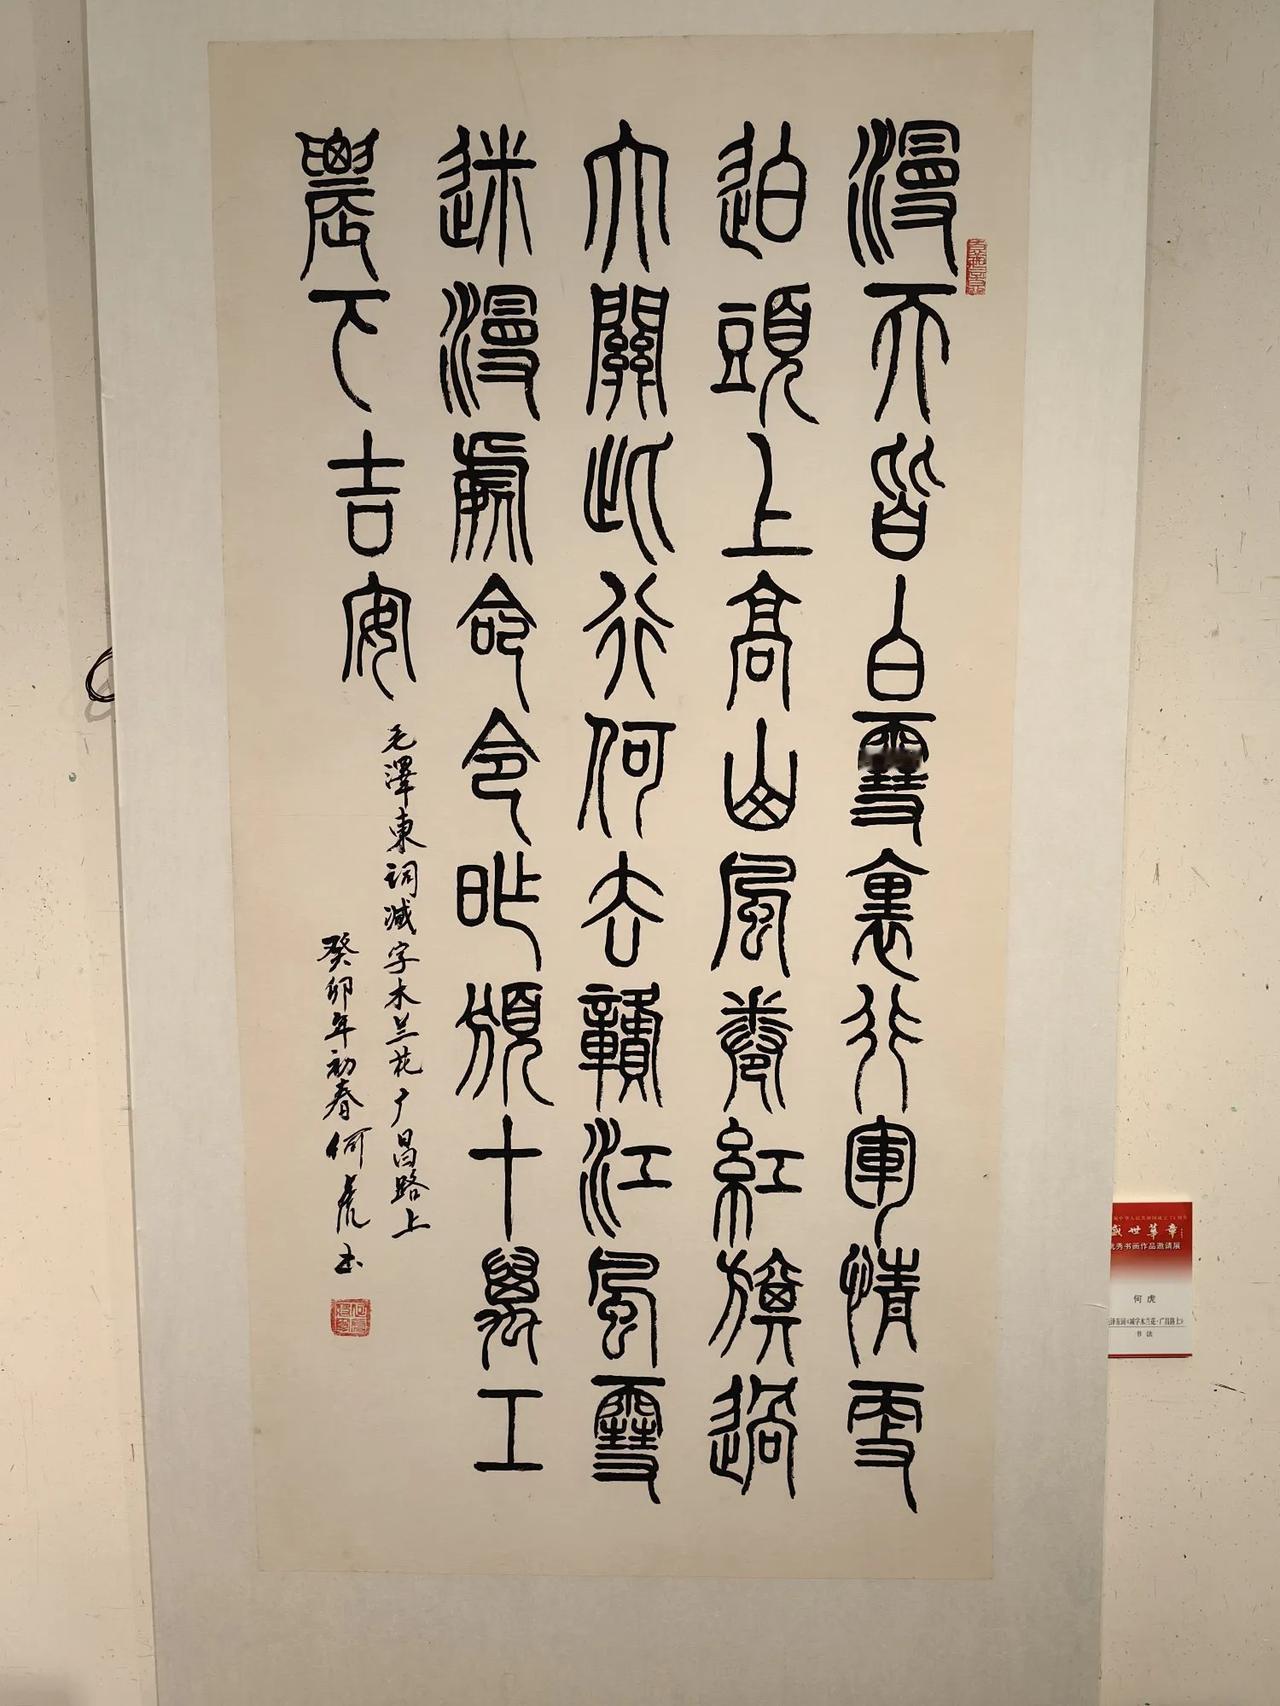 漫天皆白雪裏行軍情更
迫頭上高山風卷紅旗過
大關此行何去贛江風雪
迷漫處命令昨頒十萬工
農下吉安
毛澤東词减字木兰花广昌路上
癸卯年初春何虎书
盛世華章
优秀书画作品邀请展
何虎
泽东词《减字木兰花·广昌路上》
书法